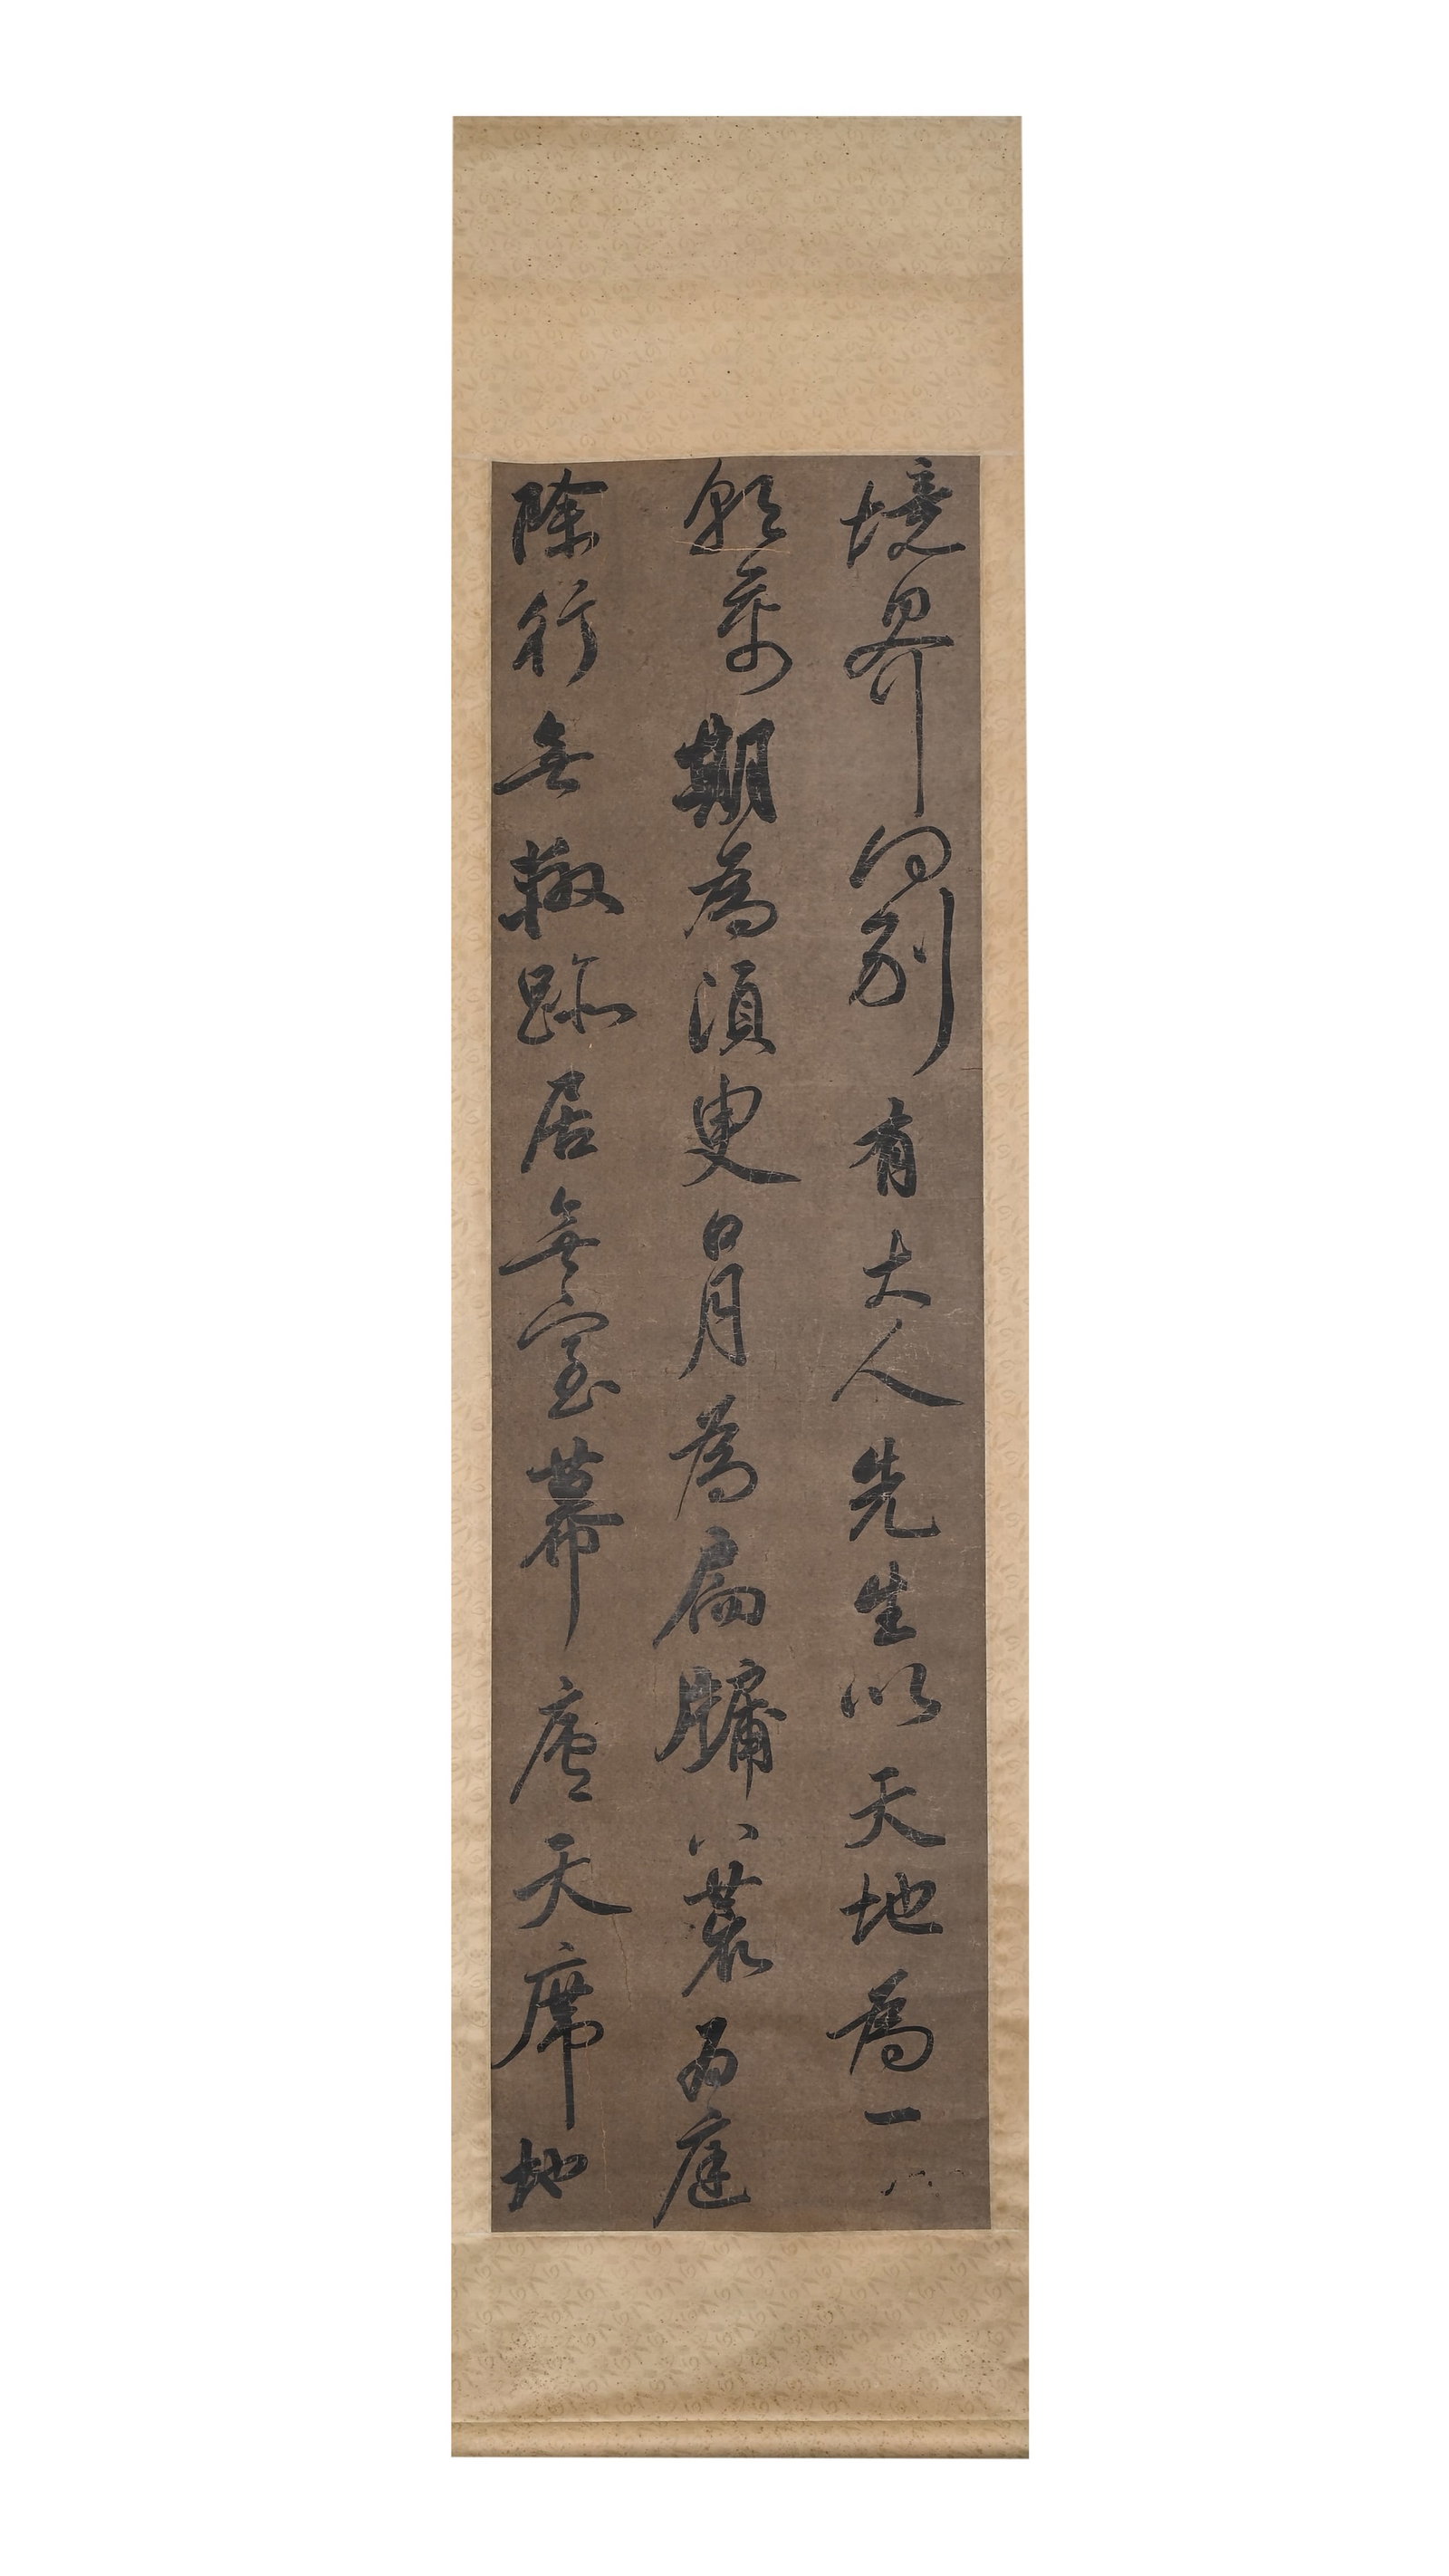 境界別有大人先生以天地為一
朝萬期為須臾日月為扃牖八荒為庭
除行無轍跡居無室幕廬天席地